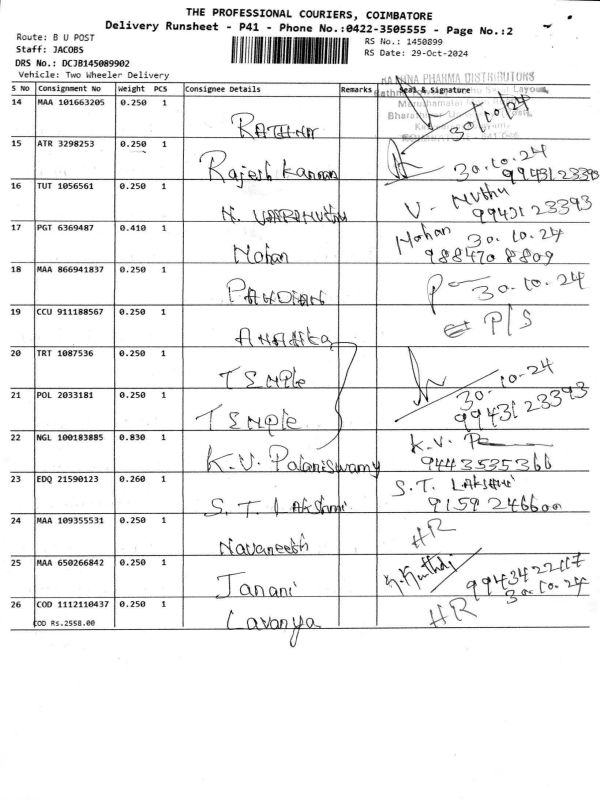 THE PROFESSIONAL COURIERS, COIMBATORE
Delivery Runsheet - P41 - Phone No.:0422-3505555 - Page No.:2
Route: B U POST
Staff: JACOBS
DRS No.: DCJB145089902
Vehicle: Two Wheeler Delivery
RS No.: 1450899
RS Date: 29-Oct-2024
S No Consignment No Weight PCS Consignee Details Remarks Seal & Signature
PHARMA DISTRIBUTORS
14 MAA 101663205 0.250 1 RATHNA 30/10/24
15 ATR 3298253 0.250 1 Rajesh Kannan 30.10.24
9943123393
16 TUT 1056561 0.250 1 V. Muthu
9943123393
17 PGT 6369487 0.410 1 Mohan Mohan 30.10.24
9884708809
18 MAA 866941837 0.250 1 PANDIAN 30.10.24
19 CCU 911188567 0.250 1 P/S
20 TRT 1087536 0.250 1 TEMPLE
21 POL 2033181 0.250 1 TEMPLE 30.10.24
9943123393
22 NGL 100183885 0.830 1 K.V. Palaniswamy K.V.
9443535366
23 EDQ 21590123 0.260 1 S.T. LAKshmi S.T. LAKSHMI
9159246600
24 MAA 109355531 0.250 1 Navaneesh HR
25 MAA 650266842 0.250 1 Janani
30.10.24
26 COD 1112110437 0.250 1 Lavanya HR
COD Rs.2558.00